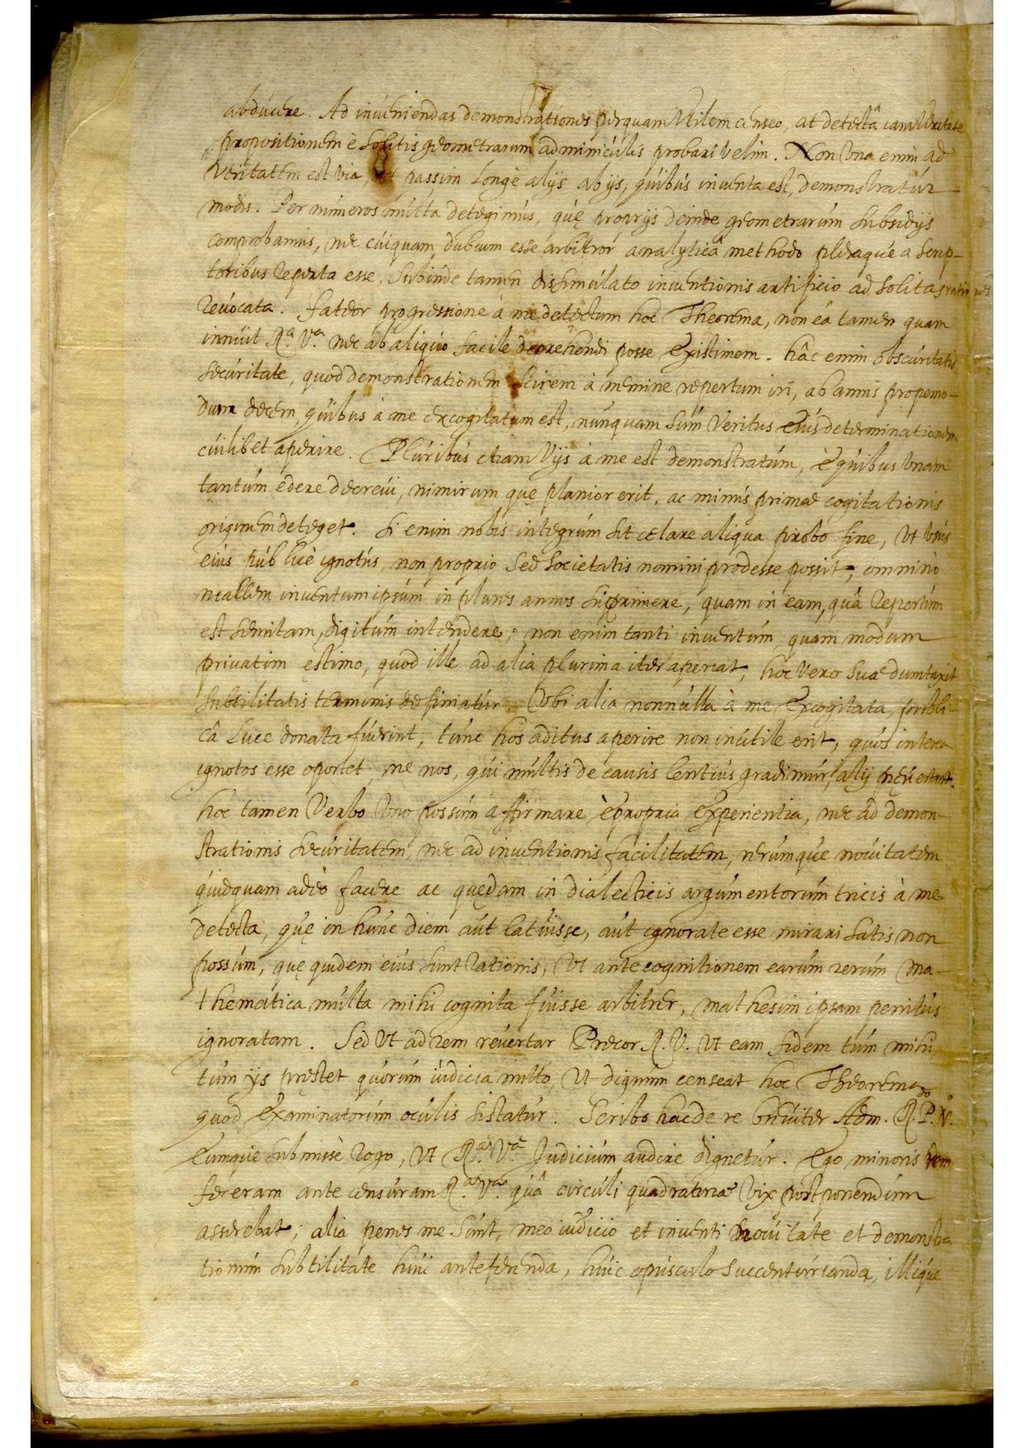 abducere. Ad inueniendas demonstrationes perquam Utilem censeo, at detectâ iam Ueritate
propositionem è solitis geometrarum adminiculis probari velim. Non Una enim ad
veritatem est via, passim longè alijs ab ijs, quibus inuenta est, demonstratur
modis. Per numeros multa detegimus, quę proprijs deinde geometrarum subsidijs
comprobamus, nec cuiquam dubium esse arbitror analyticâ methodo pleraque a scrip-
toribus reperta esse, subinde tamen dissimulato inuentionis artificio ad solitas rationes
reuocata. Fateor progressione à me detectum hoc Theorema, non eâ tamen quam
innuit Rª. Vª. nec ab aliquo facile deprehendi posse existimem. hâc enim obscuritatis
securitate, quod demonstrationem scirem à nemine repertum iri, ab annis propemo-
dum decem, quibus a me excogitatum est, nunquam sum Veritus eius determinationem
cuilibet aperire. Pluribus etiam Vijs à me est demonstratum, è quibus Unam
tantum edere decreui, nimirum quę planior erit, ac minus primae cogitationis
originem deteget. Si enim nobis integrum sit celare aliqua probo fine, Ut Usus
eius publicè ignotus, non proprio sed Societatis nomini prodesse possit, omnino
mallem inuentum ipsum in plures annos supprimere, quam in eam, quâ repertum
est semitam, digitum intendere; non enim tanti inuentum quam modum
priuatim ęstimo, quod ille ad alia plurima iter aperiat, hoc Vero suae dumtaxat
subtilitatis terminis definiatur. Ubi alia nonnulla à me excogitata, publi-
câ luce donata fuerint, tunc hos aditus aperire non inutile erit, quos interea
ignotos esse oportet, ne nos, qui multis de causis lentius gradimur, alij pręuertant.
hoc tamen Verbo Uno possum affirmare è propria experientia, nec ad demon-
strationis securitatem, nec ad inuentionis facilitatem, rerumque nouitatem
quidquam adeò facere ac quędam in dialecticis argumentorum tricis à me
detecta, quę in hunc diem aut latuisse, aut ignorata esse mirari satis non
possum, quę quidem eius sunt rationis, Ut ante cognitionem earum rerum Ma-
thematica multa mihi cognita fuisse arbitrer, mathesim ipsam penitus
ignoratam. Sed Ut ad rem reuertar Precor R. V. Ut eam fidem tum mihi
tum ijs pręstet quorum iudicia mitto, Ut dignum censeat hoc Theorema
quod examinatorum oculis sistatur. Scribo hac de re breuiter Adm. R.do P. N.
Eumque submissè rogo, Ut Rª Vª Iudicium audire dignetur. Ego minoris rem
feceram ante censuram Rª Vª quâ circuli quadraturae Vix postponendum
asserebat; alia penes me sunt, meo iudicio et inuenti nouitate et demonstra
tionum subtilitate huic anteferenda, huic opusculo succenturianda, illique